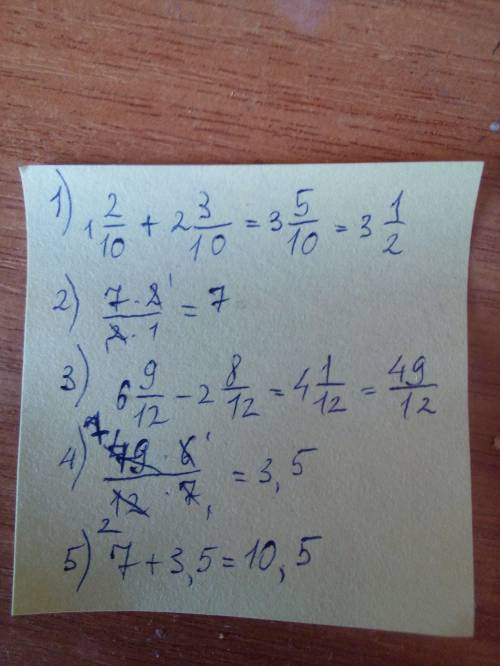 1) 1 2/10 + 2 3/10 = 3 5/10 = 3 1/2
2) 7 · 2 1 / 2 · 1 = 7
3) 6 9/12 - 2 8/12 = 4 1/12 = 49/12
4) 7 49 · 6 1 / 12 2 · 7 1 = 3,5
5) 7 + 3,5 = 10,5